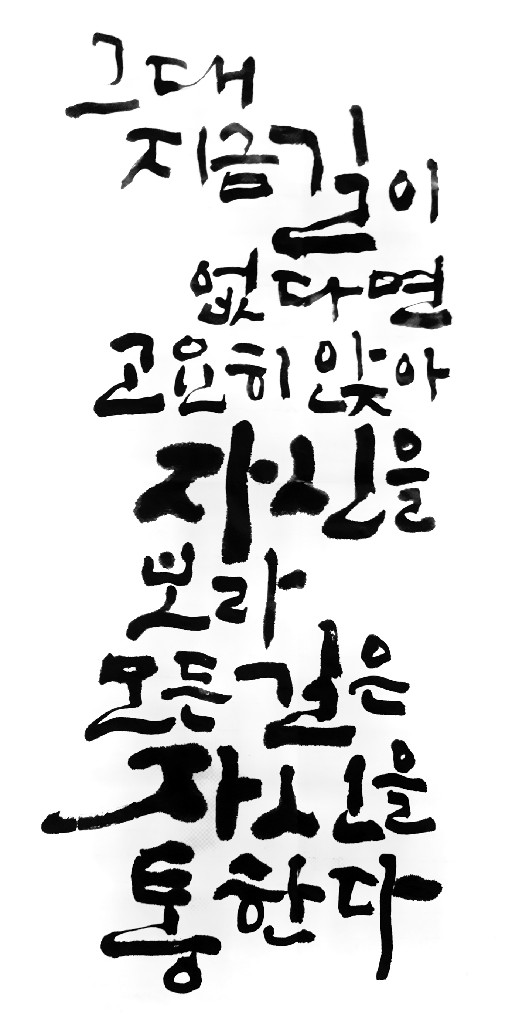 그대
지금 길이
없다면
고요히 앉아
자신을
보라
모든 길은
자신을
통한다